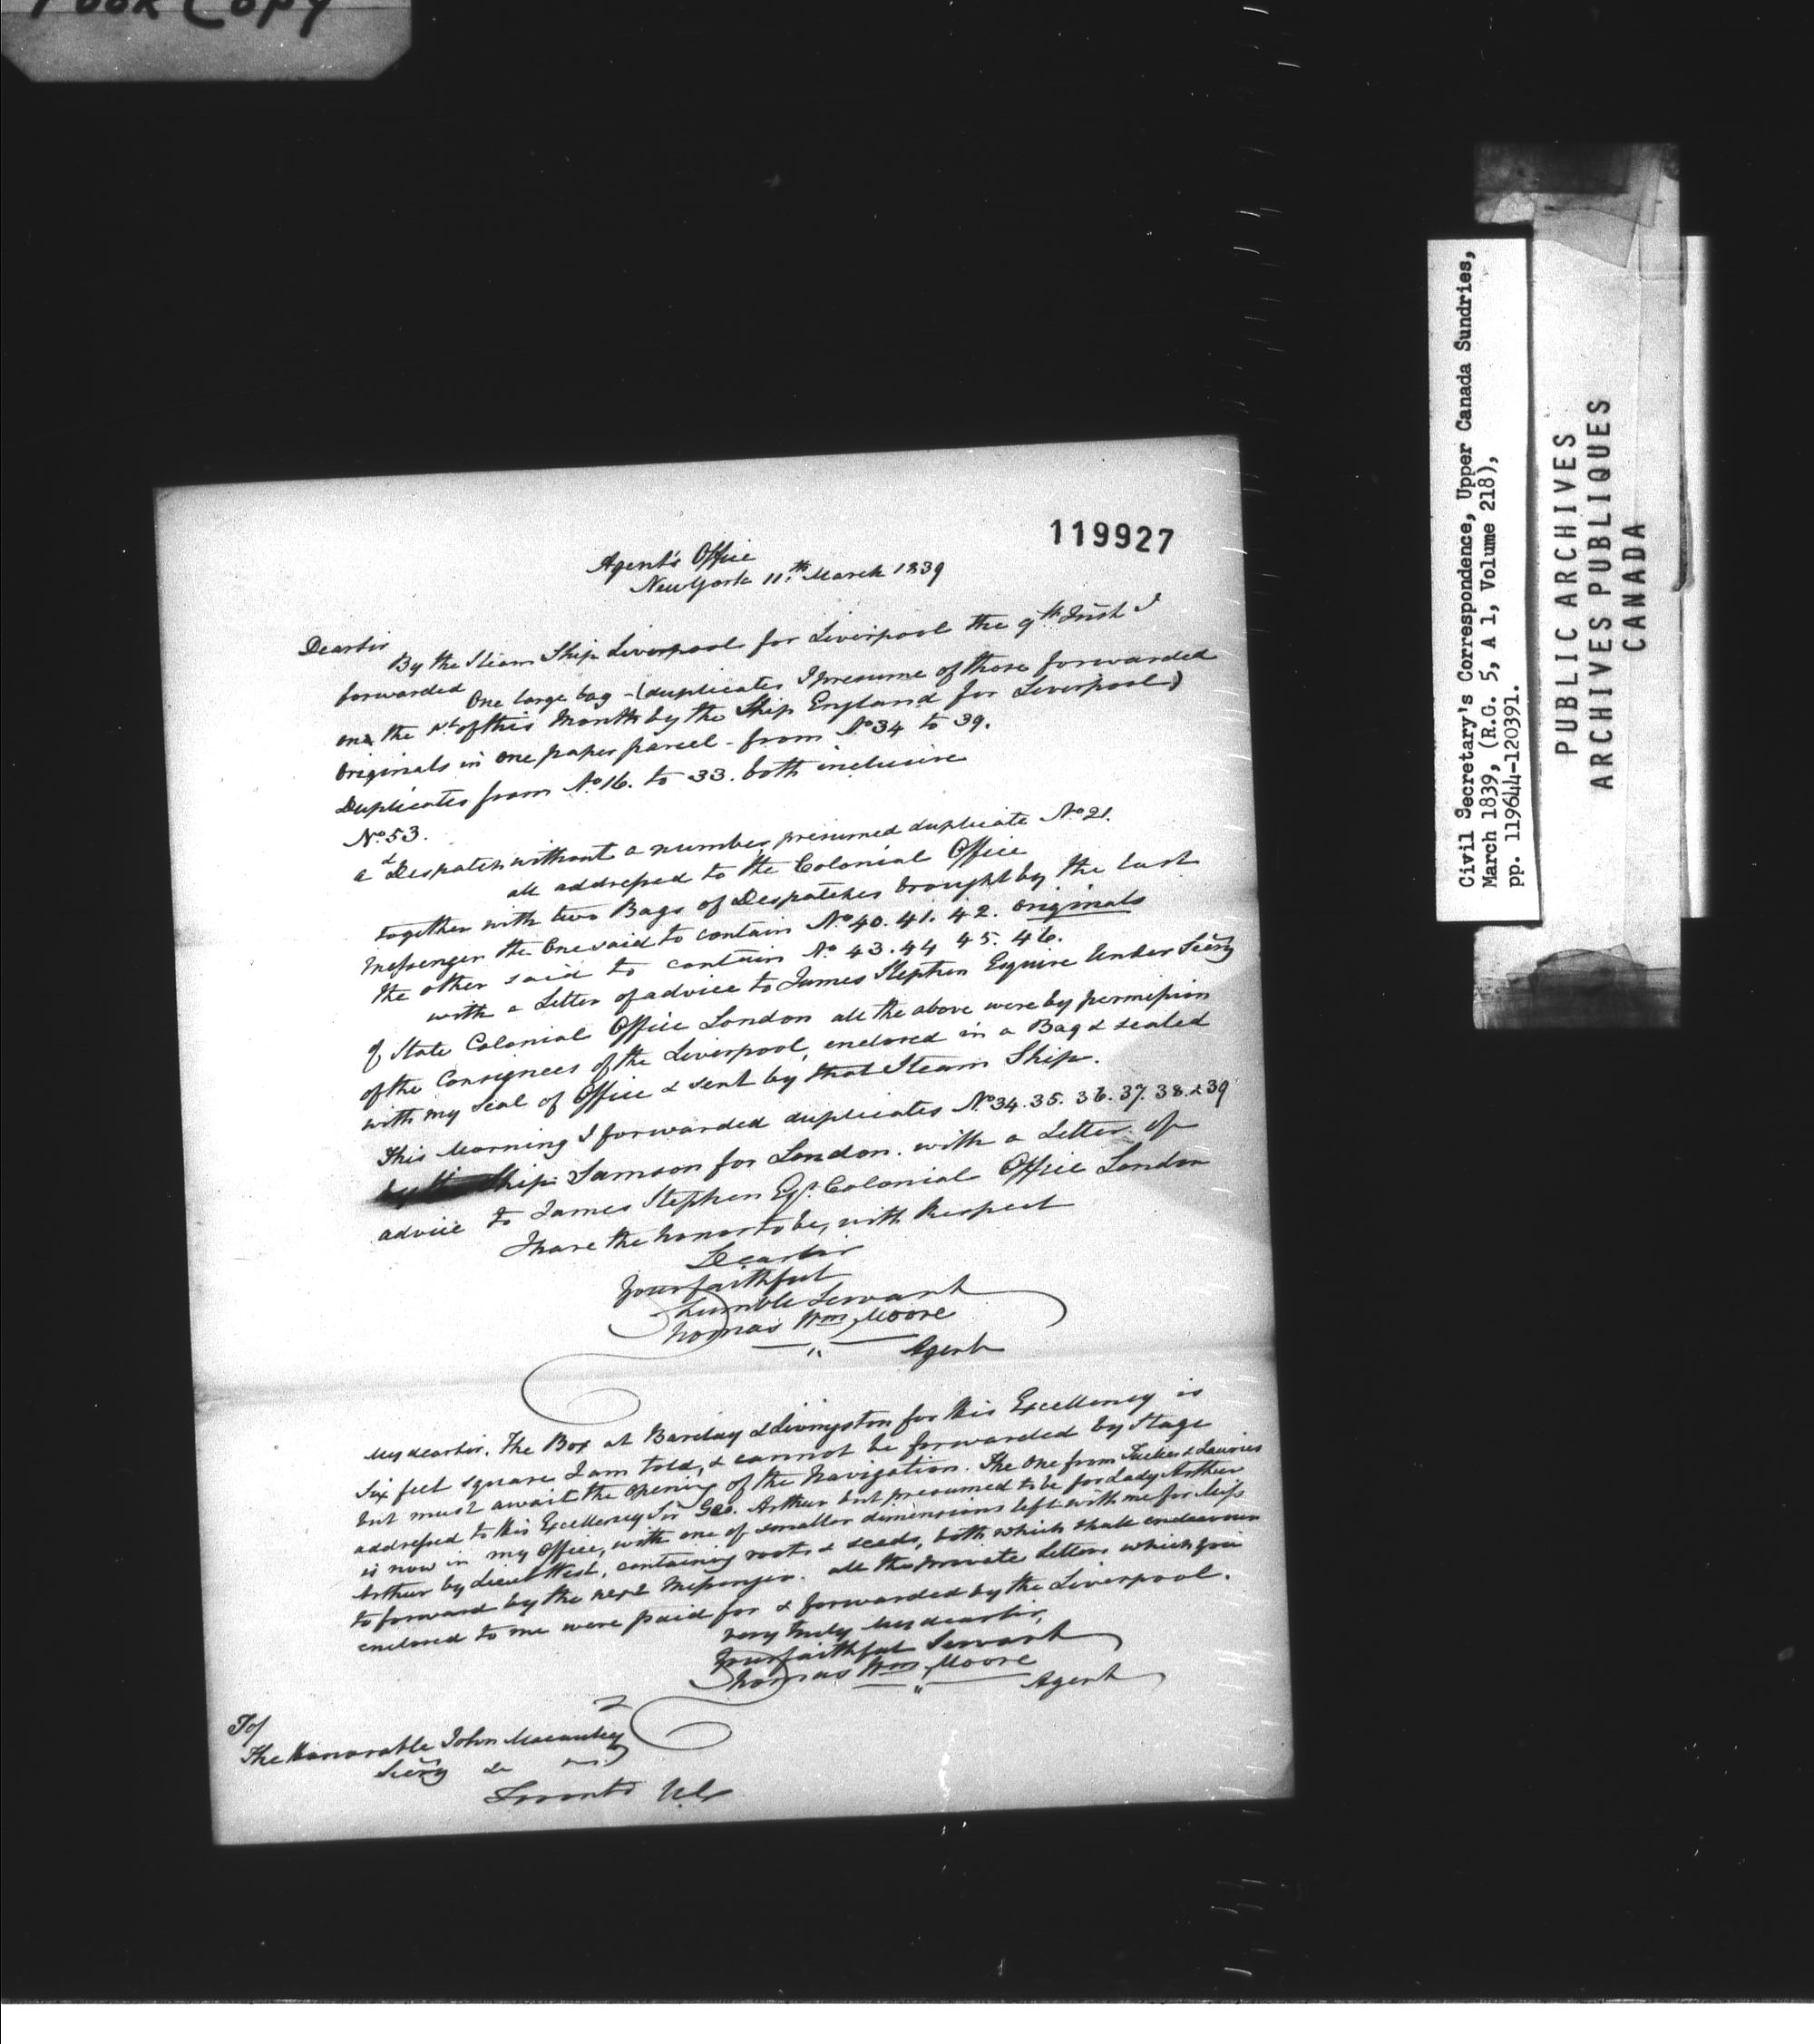 Poor Copy
119927
Agent's Office
New York 11th March 1839
Dear Sir
By the Steam Ship Liverpool for Liverpool the 9th Inst I
forwarded One large bag - (duplicates I presume of those forwarded
on the 1st of this Month by the Ship England for Liverpool)
Originals in one paper parcel - from No 34 to 39.
Duplicates from No 16. to 33. both inclusive
No 53.
a Despatch without a number, presumed duplicate No 21.
all addressed to the Colonial Office
together with two Bags of Despatches brought by the last
Messenger the One said to contain No 40. 41. 42. Originals
the other said to contain No 43. 44 45. 46.
with a Letter of advice to James Stephen Esquire Under Secry
of State Colonial Office London all the above were by permission
of the Consignees of the Liverpool, enclosed in a Bag & sealed
with my Seal of Office & sent by that Steam Ship.
This Morning I forwarded duplicates No 34. 35. 36. 37. 38. & 39
by the Ship Samson for London. with a Letter of
advice to James Stephen Esqr. Colonial Office London
I have the honor to be, with Respect
Dear Sir
Your faithful
Humble Servant
Thomas Wm Moore
Agent
My dear Sir. The Box at Barclay & Livingston for His Excellency is
Six feet square I am told, & cannot be forwarded by Stage
but must await the opening of the Navigation. The One from Tucker & Lauries
addressed to His Excellency Sir Geo. Arthur but presumed to be for Lady Arthur
is now in my Office, with one of smaller dimensions left with me for Miss
Arthur by Lieut West, containing roots & seeds, both which shall endeavour
to forward by the next Messenger. All the private Letters which you
enclosed to me were paid for & forwarded by the Liverpool.
Very truly My dear Sir,
Your faithful Servant
Thomas Wm Moore
Agent
To
The Honorable John Macaulay
Secry &
Toronto U.C.
Civil Secretary's Correspondence, Upper Canada Sundries,
March 1839, (R.G. 5, A 1, Volume 218),
pp. 119644-120391.
PUBLIC ARCHIVES
ARCHIVES PUBLIQUES
CANADA